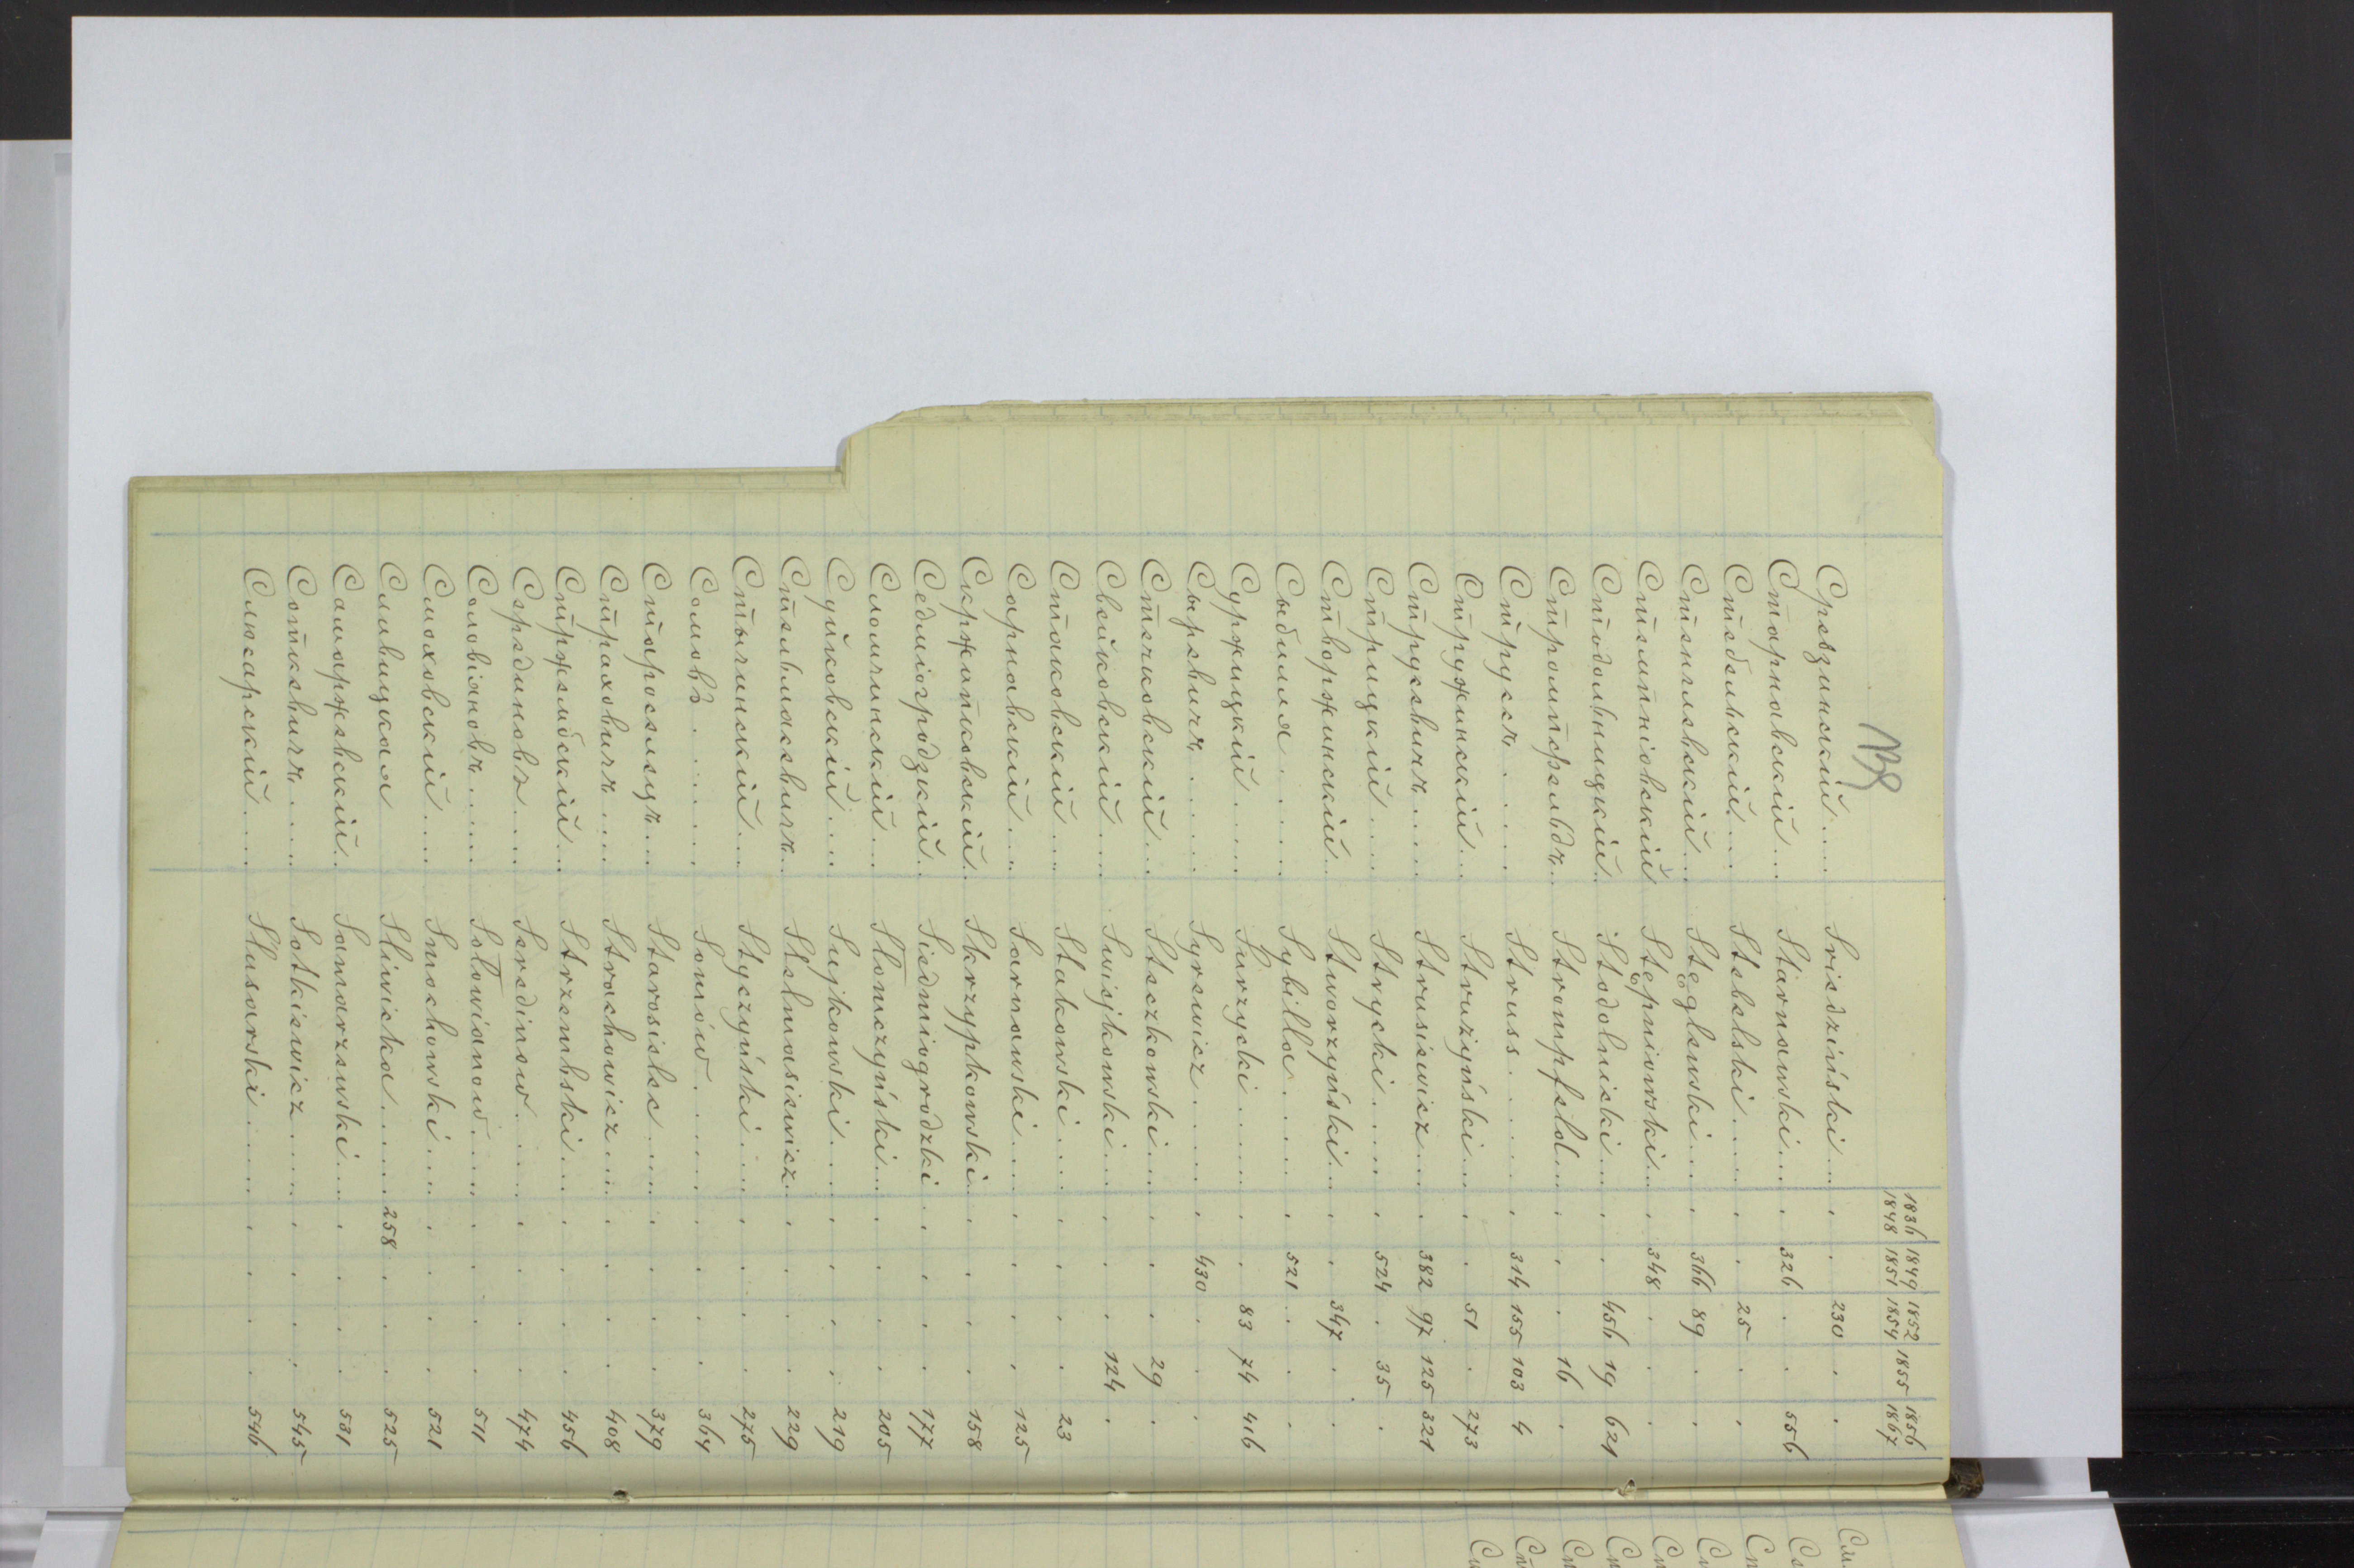 1836 1849 1852 1855 1856
1848 1851 1854 1867
Сребзинскій.... Sriedziński... 230
Старнавскій... Starnawski... 326 556
Стебельскій... Stebelski..... 25
Стенглевскій... Stęglewski... 366 89
Стемпніовскій Stępniowski... 348
Стодольницкій.. Stodolnicki... 456 19 621
Стромпфельдъ.. Strompfeld... 16
Струсъ..... Struss...... 314 155 103 4
Стружинскій... Strużyński... 51 273
Струсевичъ.... Strusiewicz... 382 97 125 321
Стрицкій.... Strycki..... 524 35
Створжинскій.. Stworzyński... 347
Сыбилла..... Sybilla..... 521
Суржицкій.... Surzycki..... 83 74 416
Сыревичъ..... Syrewicz..... 430
Стечковскій... Steczkowski.... 29
Свейковскій... Swiejkowski... 124
Стаковскій... Stakowski.... 23
Сарнавскій... Sarnawski.... 125
Скржипковскій.. Skrzypkowski.. 158
Седміогродзкій.. Siedmiogrodzki.. 177
Сломчинскій... Słomczyński... 205
Суйковскій.... Sujkowski.... 219
Стельмасевичъ.. Stelmasiewicz.. 229
Стычинскій... Styczyński... 275
Сомовъ...... Somów...... 364
Староселецъ... Starosielec.... 379
Страховичъ.... Strachowicz... 408
Стржембскій.. Strzembski... 456
Серединовъ.... Seredinow.... 474
Соловіановъ.... Sołowianow.... 511
Смоховскій.... Smochowski.... 521
Сливицкая Sliwicka..... 258 525
Самаржевскій.. Samarzewski... 531
Соткевичъ.... Sotkiewicz.... 545
Слюсарскій.... Slusarski..... 546